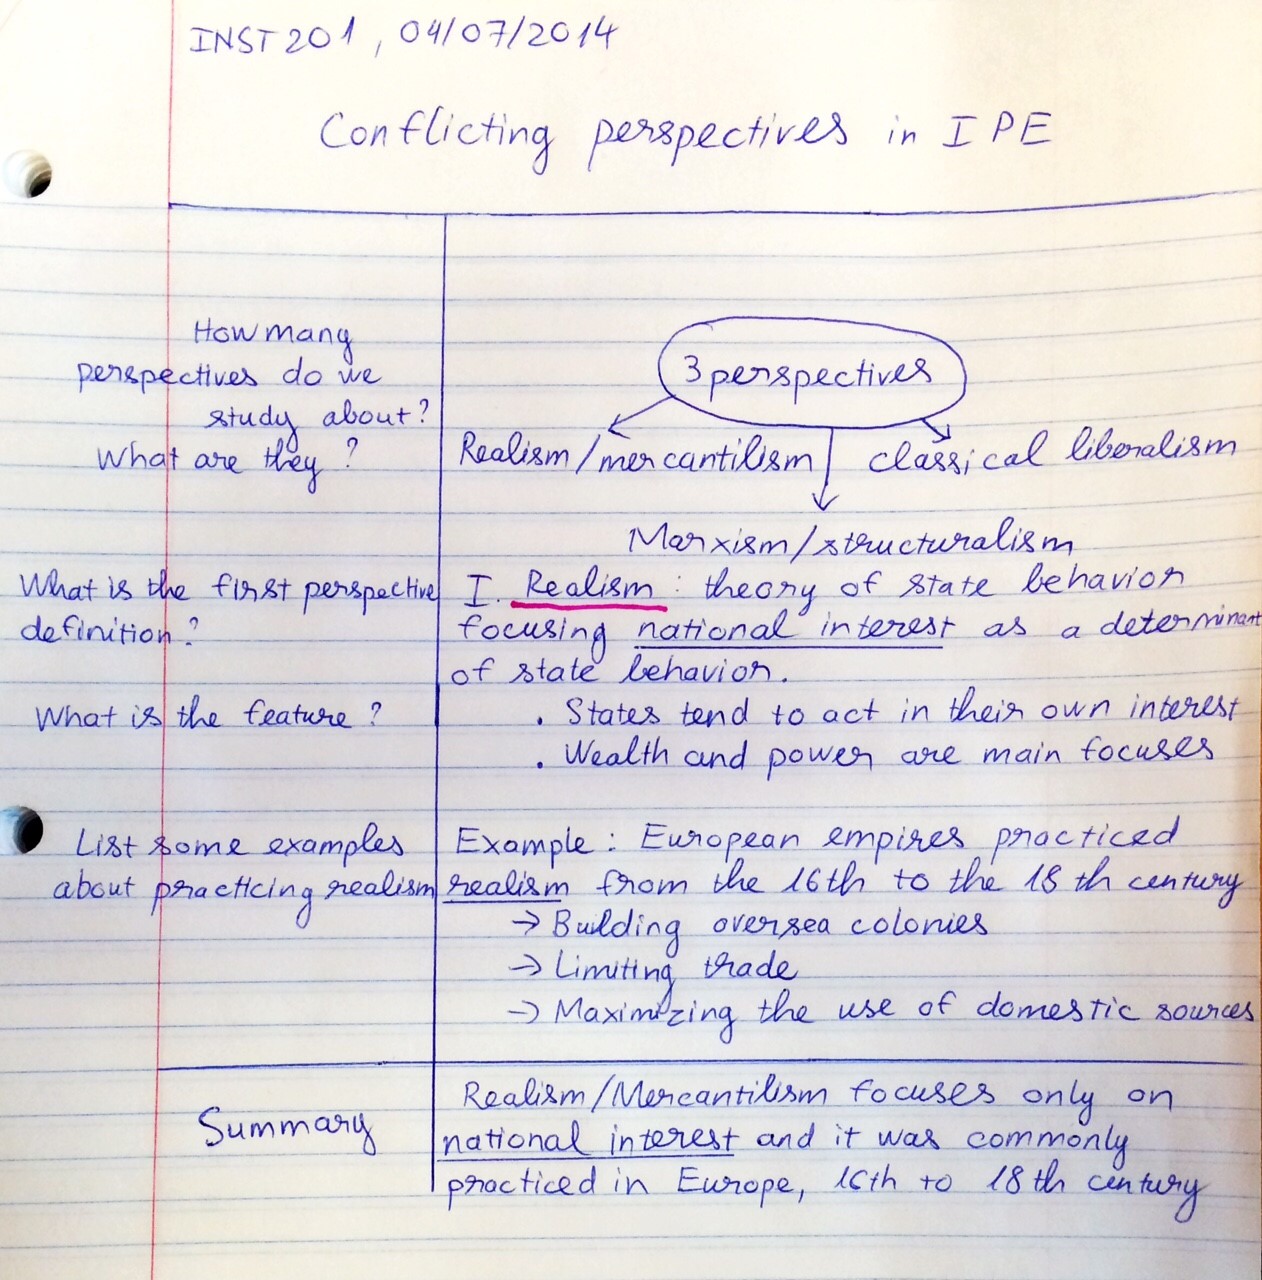 INST 201, 04/07/2014
Conflicting perspectives in IPE
How many
perspectives do we
study about?
What are they?
3 perspectives
Realism/mercantilism
classical liberalism
Marxism/structuralism
What is the first perspective
definition?
I. Realism: theory of state behavior
focusing national interest as a determinant
of state behavior.
What is the feature?
. States tend to act in their own interest
. Wealth and power are main focuses
List some examples
about practicing realism
Example: European empires practiced
realism from the 16th to the 18th century
→ Building oversea colonies
→ Limiting trade
→ Maximizing the use of domestic sources
Summary
Realism/Mercantilism focuses only on
national interest and it was commonly
practiced in Europe, 16th to 18th century